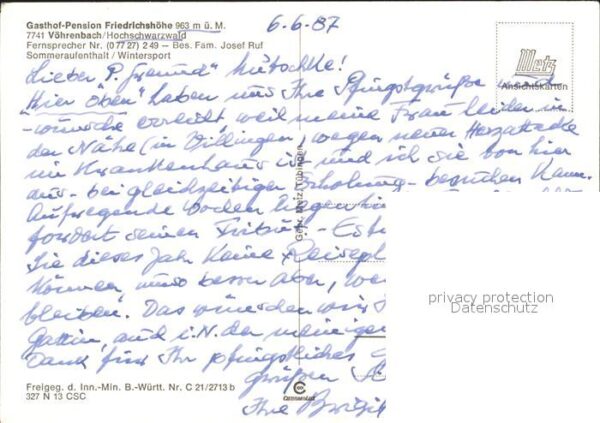 Gasthof-Pension Friedrichshöhe 963 m ü. M.
7741 Vöhrenbach/Hochschwarzwald
Fernsprecher Nr. (0 77 27) 2 49 – Bes. Fam. Josef Ruf
Sommeraufenthalt / Wintersport
6.6.87
Metz
Ansichtskarten
Lieber P. Freund"
"Hier oben" haben uns Ihre Pfingstgrüße und
-wünsche erreicht weil meine Frau leider in
der Nähe (in Villingen) wegen neuer Herzattacke
im Krankenhaus ist und ich sie von hier
aus - bei gleichzeitiger Erholung - besuchen kann.
Aufregende Wochen liegen
fordert seinen Tribut. - Es
Sie dieses Jahr keine Reisepl
können muss besser aber, we
bleiben. Das wünschen wir
Gattin, auch i.N. der meinigen
Dank für Ihr pfingstliches
Grüßen
Ihre Brigit
Gebr. Metz, Tübingen
privacy protection
Datenschutz
Freigeg. d. Inn.-Min. B.-Württ. Nr. C 21/2713 b
327 N 13 CSC